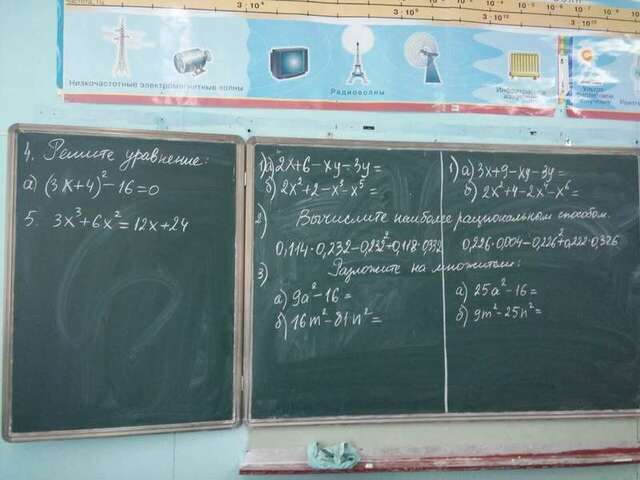 3·10⁴
3·10⁸
3·10¹⁰
3·10¹²
Низкочастотные электромагнитные волны
Радиоволны
4. Решите уравнение:
а) (3x+4)²-16=0
5. 3x³+6x²=12x+24
1) а) 2x+6-xy-3y=
б) 2x²+2-x³-x⁵=
2) Вычислите наиболее рациональным способом.
0,114·0,232-0,232²+0,118·0,332
3) Разложите на множители:
а) 9a²-16=
б) 16m²-81n²=
1) а) 3x+9-xy-3y=
б) 2x²+4-2x⁴-x⁶=
0,226·0,004-0,226²+0,222·0,326
а) 25a²-16=
б) 9m²-25n²=